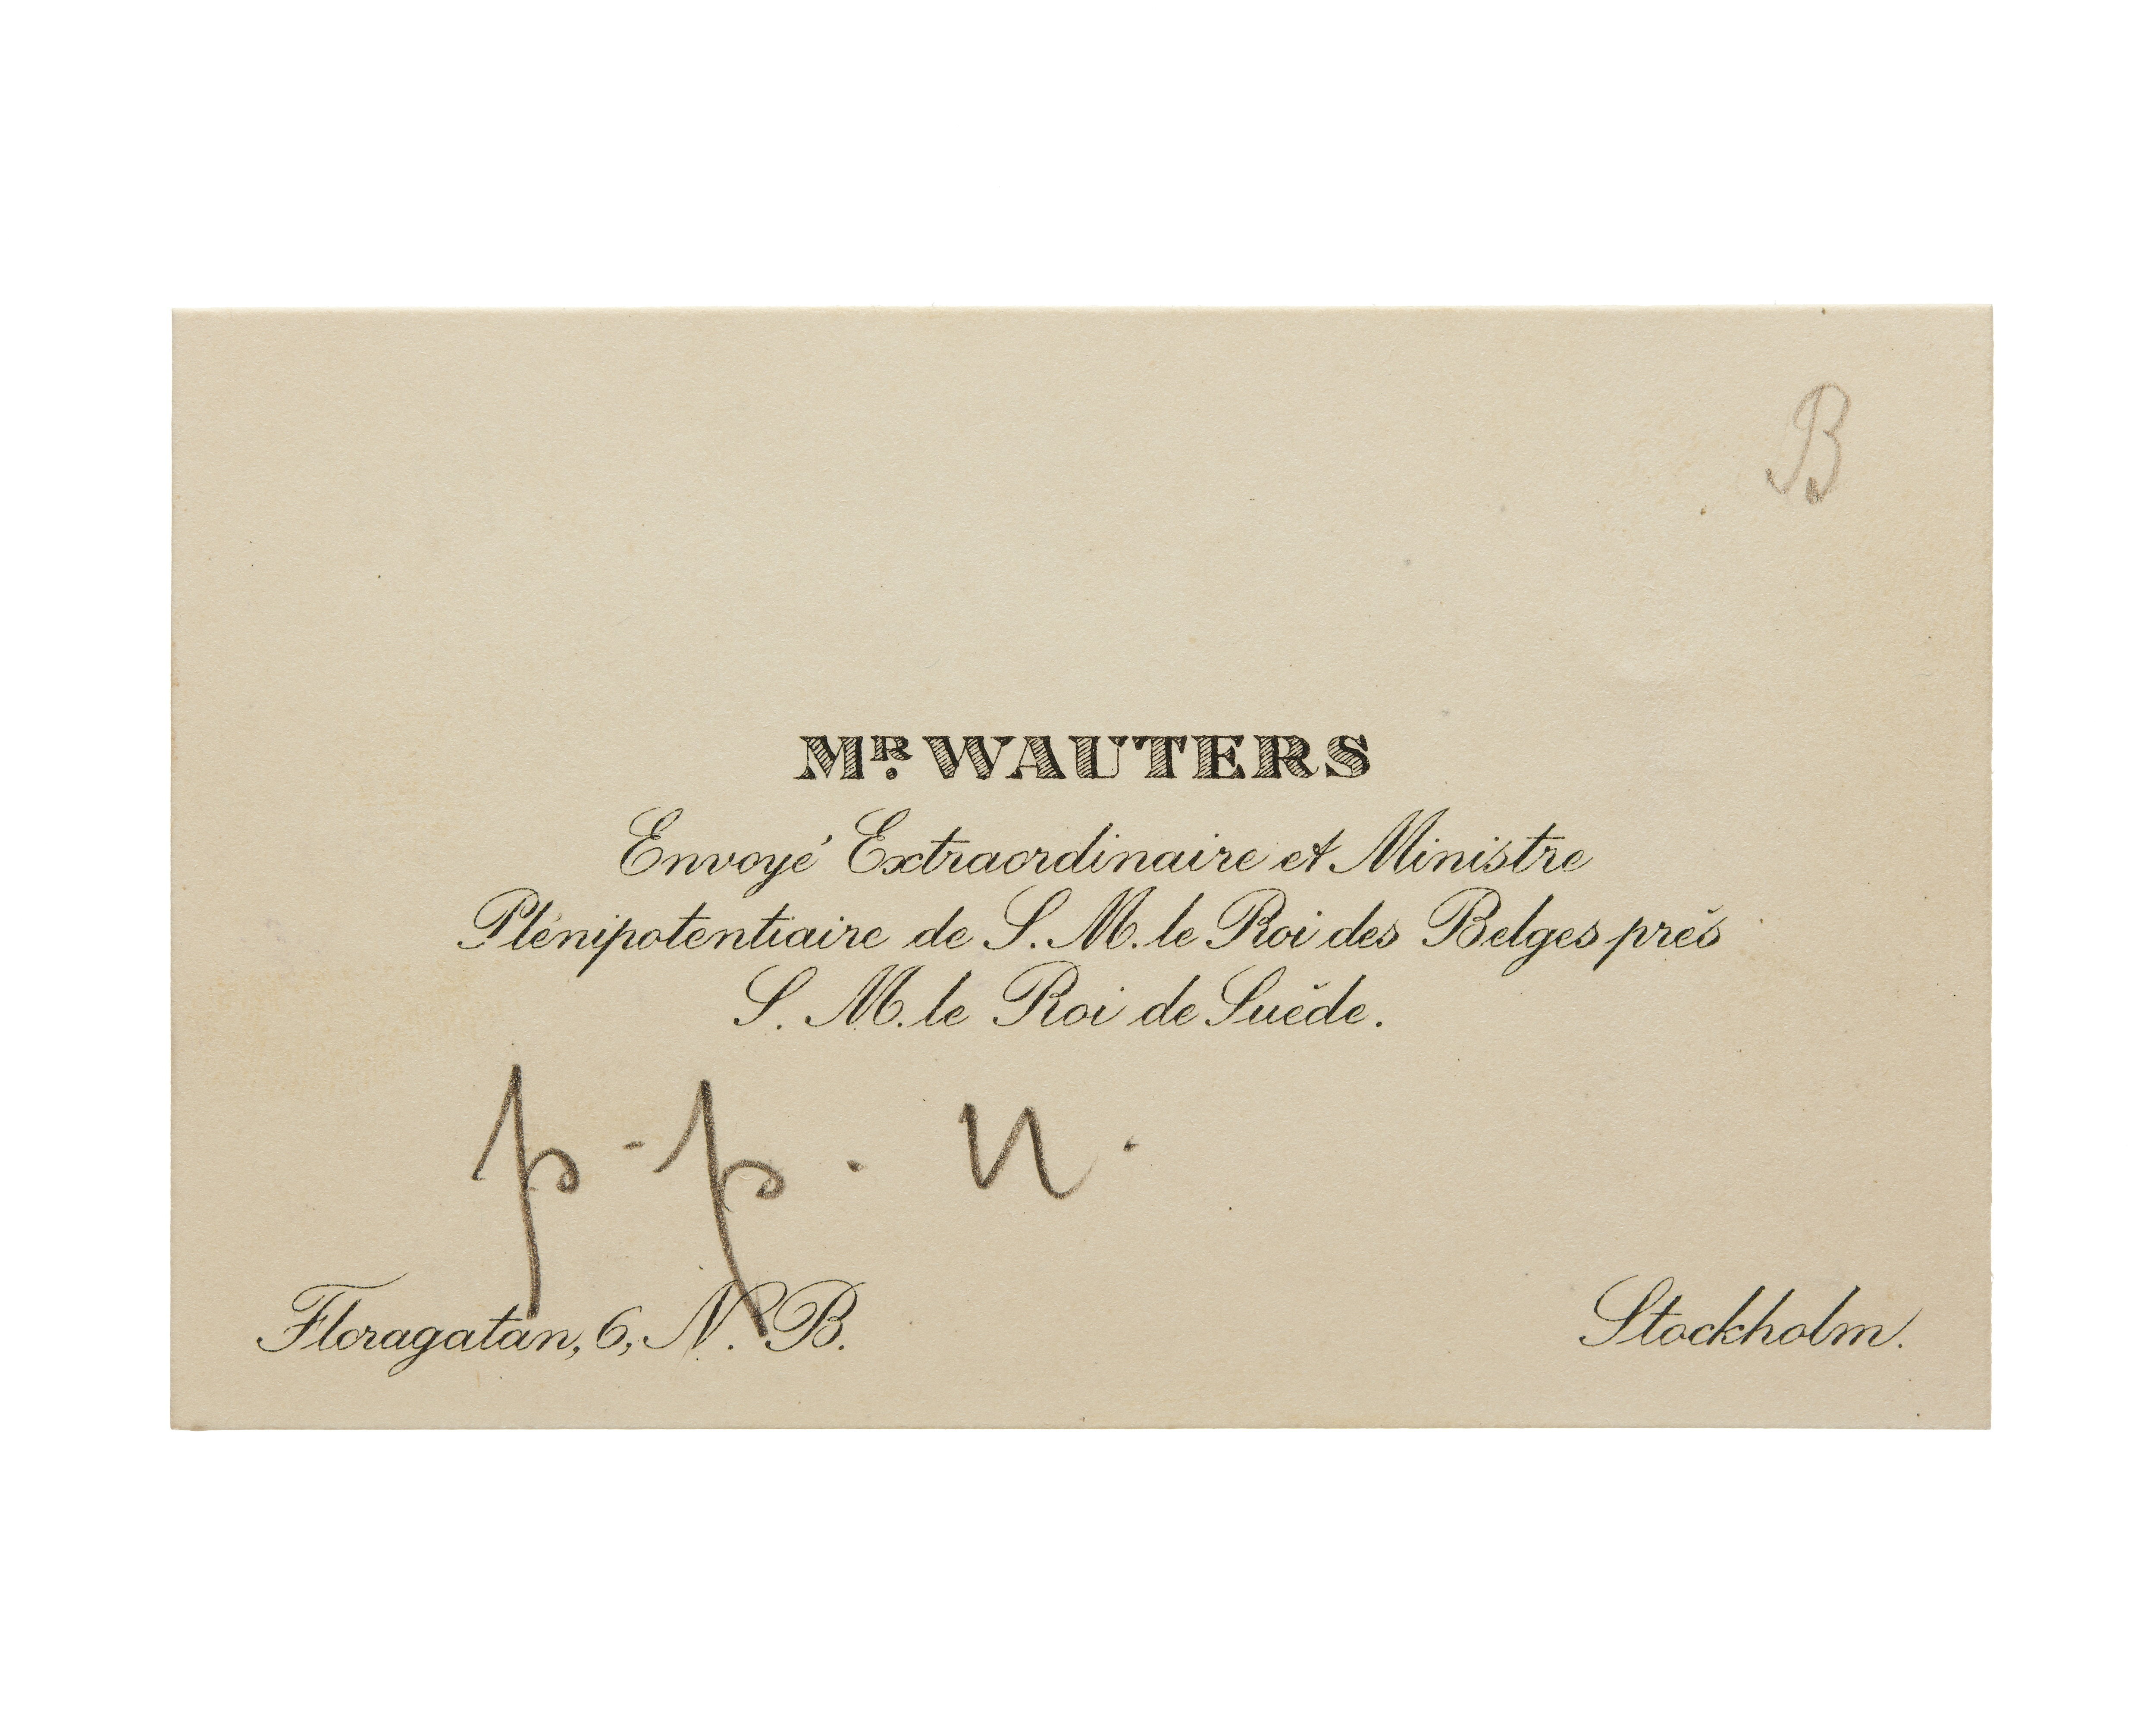 B
MR. WAUTERS
Envoyé Extraordinaire et Ministre
Plénipotentiaire de S. M. le Roi des Belges près
S. M. le Roi de Suède.
p. p. n.
Floragatan, 6, N. B. Stockholm.